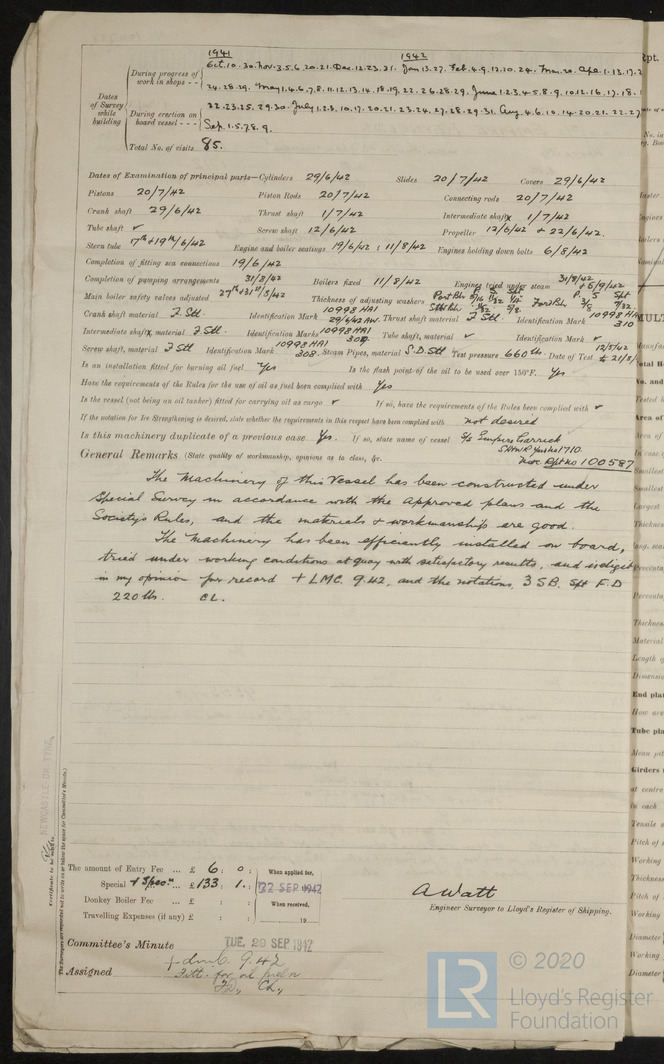 1941 1942
Dates of Survey while building
During progress of work in shops - - Oct. 10. 30. Nov. 3. 5. 6. 20. 21. Dec. 12. 23. 31. Jan 13. 27. Feb. 4. 9. 12. 20. 24. Mar. 20. Apl. 1. 13. 17. 2
24. 28. 29. May 1. 4. 6. 7. 8. 11. 12. 13. 14. 18. 19. 22. 26. 28. 29. June 1. 2. 3. 4. 5. 8. 9. 10. 12. 16. 17. 18. 1
During erection on board vessel - - - 22. 23. 25. 29. 30. July 1. 2. 3. 10. 17. 20. 21. 23. 24. 27. 28. 29. 31. Aug. 4. 6. 10. 14. 20. 21. 22. 27
Sep. 1. 5. 7. 8. 9.
Total No. of visits 85.
Dates of Examination of principal parts—Cylinders 29/6/42 Slides 20/7/42 Covers 29/6/42
Pistons 20/7/42 Piston Rods 20/7/42 Connecting rods 20/7/42
Crank shaft 29/6/42 Thrust shaft 1/7/42 Intermediate shafts 1/7/42
Tube shaft ✓ Screw shaft 12/6/42 Propeller 12/6/42 + 22/6/42.
Stern tube 17th + 19th/6/42 Engine and boiler seatings 19/6/42 : 11/8/42 Engines holding down bolts 6/8/42
Completion of fitting sea connections 19/6/42
Completion of pumping arrangements 31/8/42 Boilers fixed 11/8/42 Engines tried under steam 31/8/42 + 5/9/42
Main boiler safety valves adjusted 27th + 31st/8/42 Thickness of adjusting washers
Crank shaft material I Stl. Identification Mark 10993 HAI 29/6/42 AW. Thrust shaft material I Stl. Identification Mark 10993 HA 310
Intermediate shafts, material I Stl. Identification Marks 10993 HAI Tube shaft, material ✓ Identification Mark ✓
Screw shaft, material I Stl Identification Mark 10993 HAI 308. Steam Pipes, material S.D. Stl Test pressure 660 lbs. Date of Test 12/5/42 to 21/8/
Is an installation fitted for burning oil fuel Yes Is the flash point of the oil to be used over 150°F. Yes
Have the requirements of the Rules for the use of oil as fuel been complied with Yes
Is the vessel (not being an oil tanker) fitted for carrying oil as cargo ✓ If so, have the requirements of the Rules been complied with ✓
If the notation for Ice Strengthening is desired, state whether the requirements in this respect have been complied with not desired
Is this machinery duplicate of a previous case Yes. If so, state name of vessel S/S Empire Garrick
Nwc Rpt No 100587
General Remarks (State quality of workmanship, opinions as to class, &c.
The Machinery of this Vessel has been constructed under
Special Survey in accordance with the approved plans and the
Society's Rules, and the materials + workmanship are good.
The Machinery has been efficiently installed on board,
tried under working conditions at quay with satisfactory results, and is eligible
in my opinion for record + LMC. 9.42, and the notations, 3 SB. Spt F.D
220 lbs. CL.
NEWCASTLE-ON-TYNE
Certificate to be sent to
The amount of Entry Fee ... £ 6 : 0 : When applied for,
Special + Spec ... £ 133 : 1 : 22 SEP 1942
Donkey Boiler Fee ... £ : : When received,
Travelling Expenses (if any) £ : : 19
A Watt
Engineer Surveyor to Lloyd's Register of Shipping.
Committee's Minute TUE. 29 SEP 1942
Assigned + LMC. 9.42
Fitt. for oil fuel
FD, CL,
© 2020
LR Lloyd's Register
Foundation